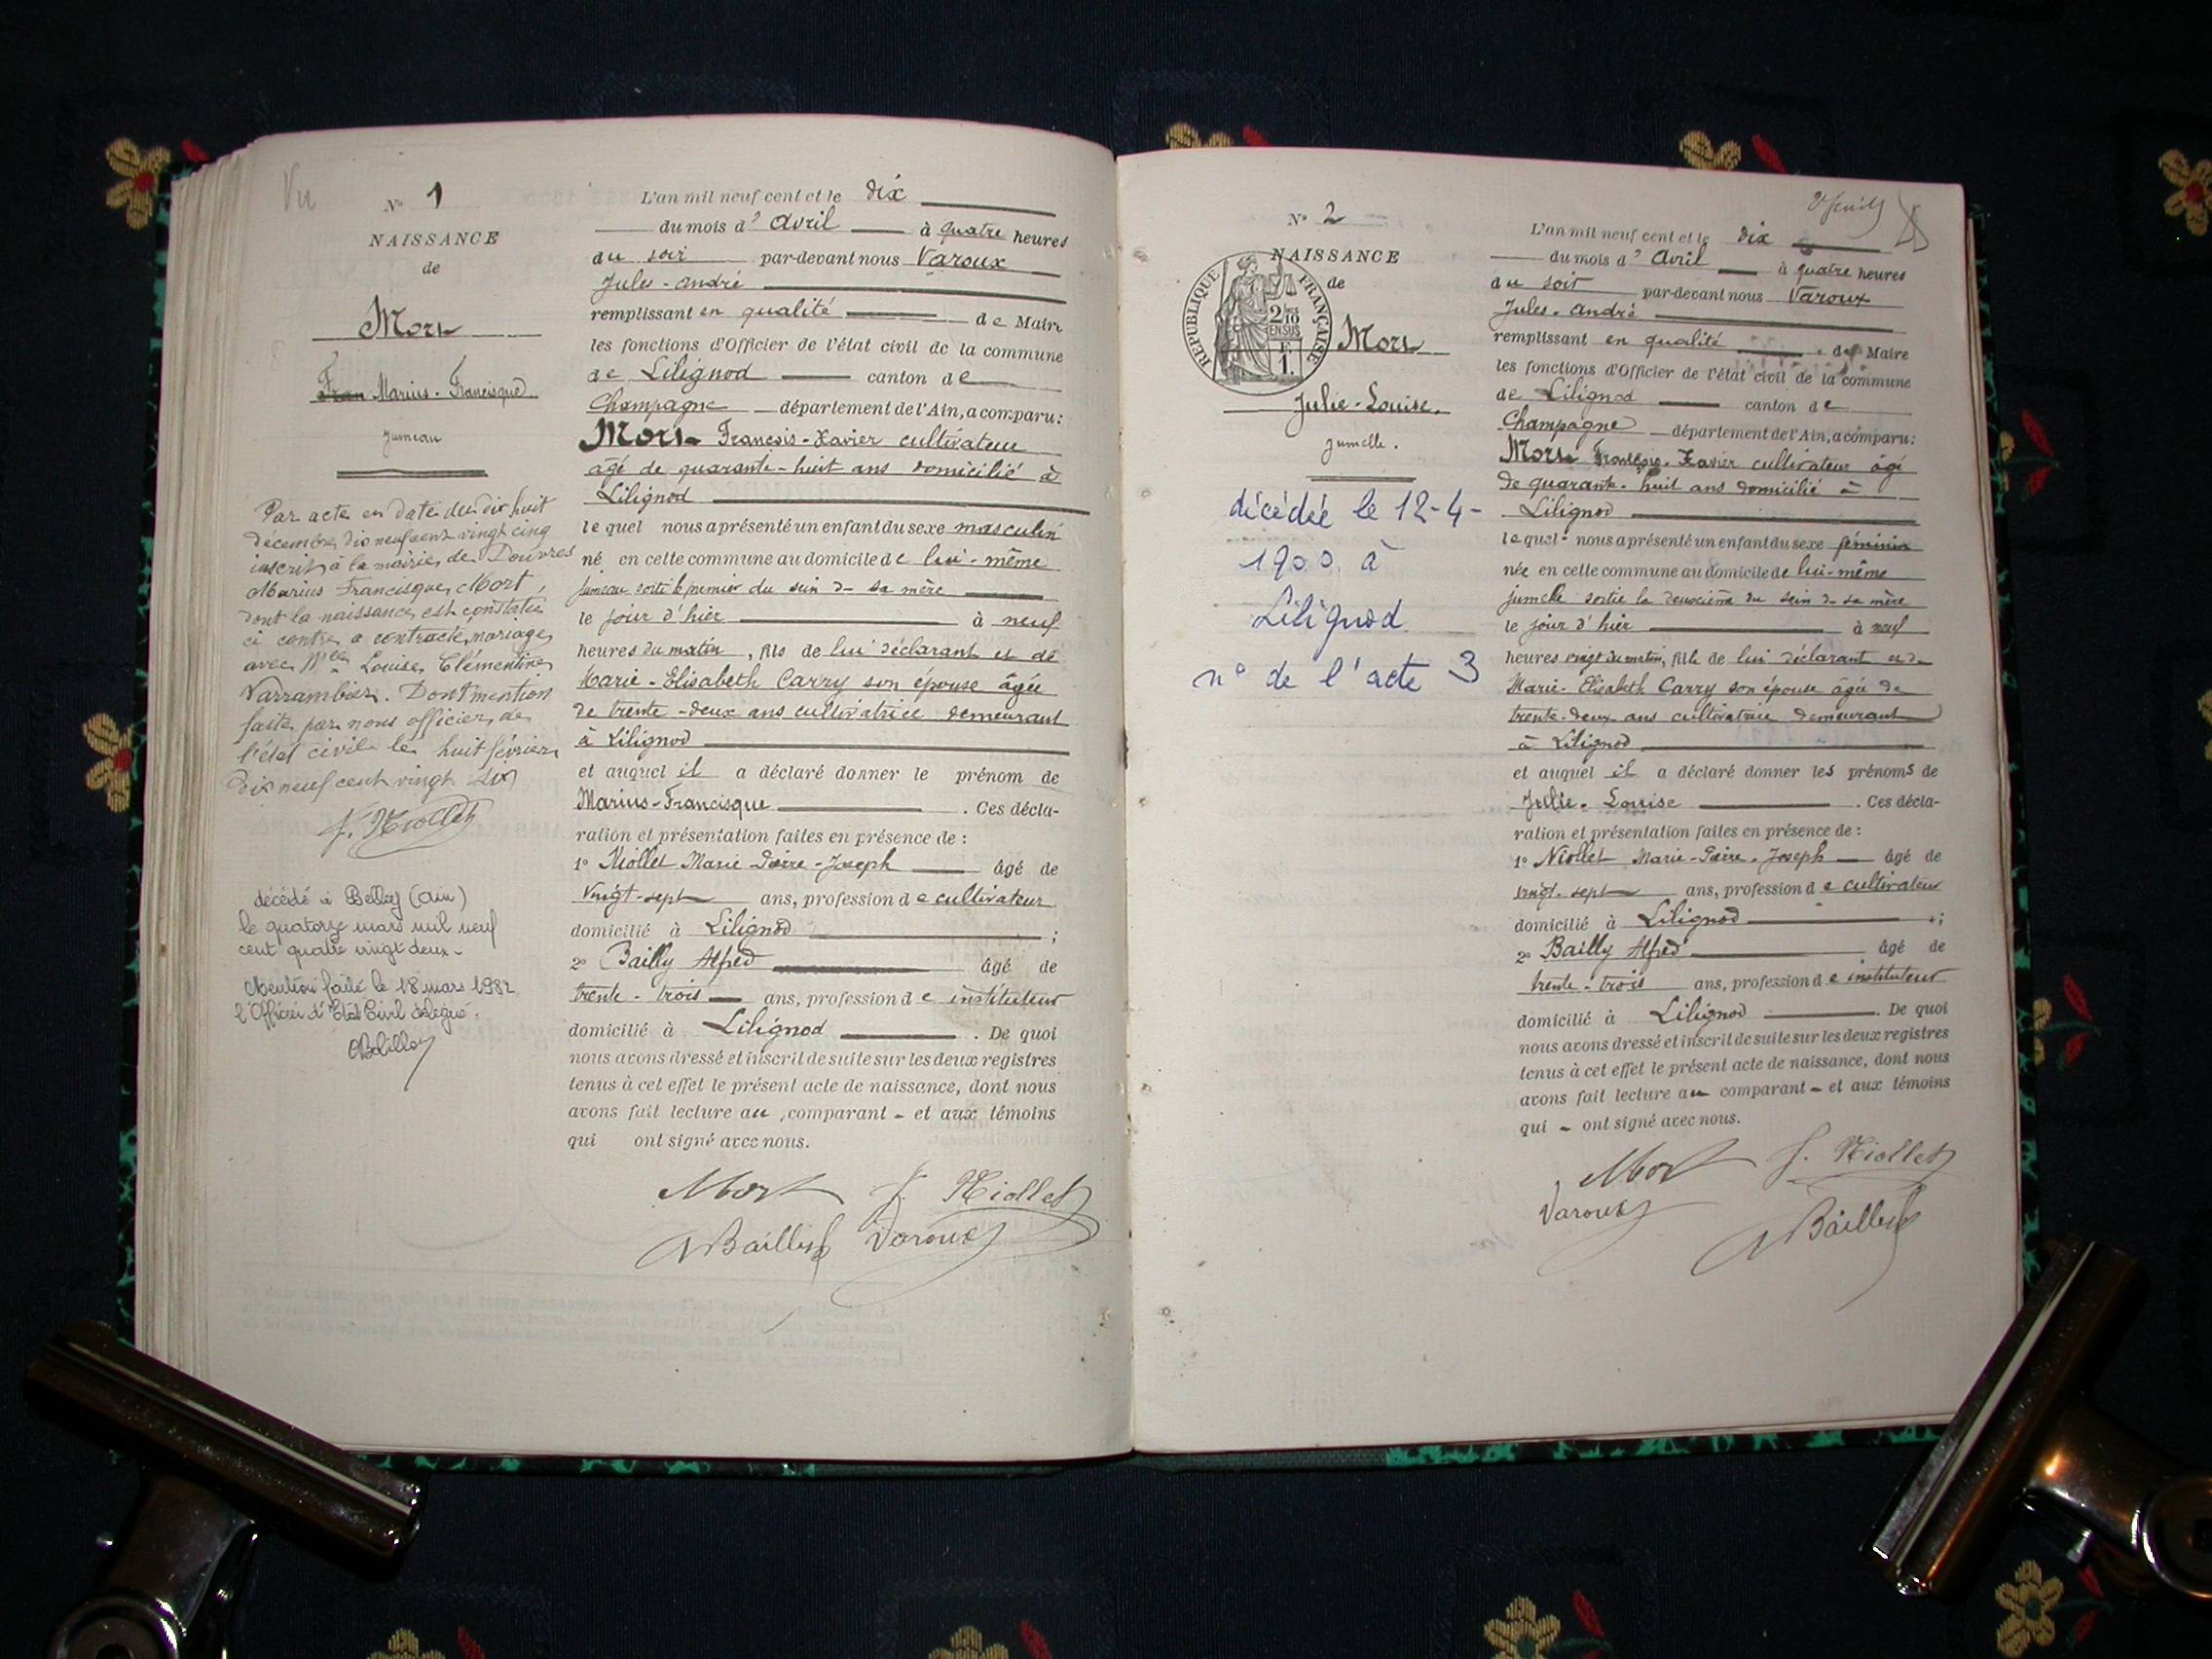 Vu
N° 1
NAISSANCE
de
Mort
Fran Marius-Francisque
Jumeau
Par acte en date du dix huit
décembre dix neuf cent vingt cinq
inscrit à la mairie de Douvres
Marius Francisque Mort,
dont la naissance est constatée
ci contre a contracté mariage
avec Mlle Louise Clémentine
Varrambier. Dont mention
faite par nous officier de
l'état civil le huit février
dix neuf cent vingt six
J. Niollet
décédé à Belley (Ain)
le quatorze mars mil neuf
cent quatre vingt deux-
Mention faite le 18 mars 1982
l'Officier d'Etat Civil délégué.
L'an mil neuf cent et le dix
du mois d' Avril à quatre heures
du soir par-devant nous Varoux
Jules-André
remplissant en qualité de Maire
les fonctions d'Officier de l'état civil de la commune
de Lilignod canton de
Champagne département de l'Ain, a comparu:
Mort François-Xavier cultivateur
âgé de quarante-huit ans domicilié à
Lilignod
lequel nous a présenté un enfant du sexe masculin
né en cette commune au domicile de lui-même
jumeau sorti le premier du sein de sa mère
le jour d'hier à neuf
heures du matin, fils de lui déclarant et de
Marie-Elisabeth Carry son épouse âgée
de trente-deux ans cultivatrice demeurant
à Lilignod
et auquel il a déclaré donner le prénom de
Marius-Francisque. Ces décla-
ration et présentation faites en présence de:
1° Niollet Marie Pierre-Joseph âgé de
vingt-sept ans, profession de cultivateur
domicilié à Lilignod;
2° Bailly Alfred âgé de
trente-trois ans, profession de instituteur
domicilié à Lilignod. De quoi
nous avons dressé et inscrit de suite sur les deux registres
tenus à cet effet le présent acte de naissance, dont nous
avons fait lecture au comparant - et aux témoins
qui ont signé avec nous.
Mort J. Niollet
ABailly Varoux
N° 2
NAISSANCE
de
RÉPUBLIQUE FRANÇAISE
2/10
EN SUS
1.
Mort
Julie-Louise.
jumelle.
décédée le 12-4-
1900 à
Lilignod
n° de l'acte 3
L'an mil neuf cent et le dix
du mois d' Avril à quatre heures
du soir par-devant nous Varoux
Jules-André
remplissant en qualité de Maire
les fonctions d'Officier de l'état civil de la commune
de Lilignod canton de
Champagne département de l'Ain, a comparu:
Mort François-Xavier cultivateur âgé
de quarante-huit ans domicilié à
Lilignod
lequel nous a présenté un enfant du sexe féminin
née en cette commune au domicile de lui-même
jumelle sortie la deuxième du sein de sa mère
le jour d'hier à neuf
heures vingt du matin, fille de lui déclarant et de
Marie-Elisabeth Carry son épouse âgée de
trente-deux ans cultivatrice demeurant
à Lilignod
et auquel il a déclaré donner les prénoms de
Julie-Louise. Ces décla-
ration et présentation faites en présence de:
1° Niollet Marie-Pierre-Joseph âgé de
vingt-sept ans, profession de cultivateur
domicilié à Lilignod;
2° Bailly Alfred âgé de
trente-trois ans, profession de instituteur
domicilié à Lilignod. De quoi
nous avons dressé et inscrit de suite sur les deux registres
tenus à cet effet le présent acte de naissance, dont nous
avons fait lecture au comparant - et aux témoins
qui - ont signé avec nous.
Mort J. Niollet
Varoux ABailly